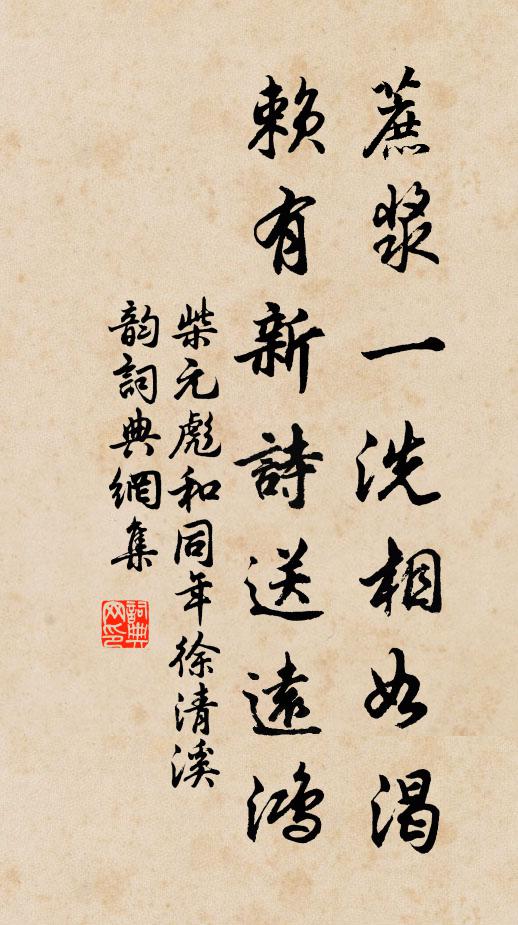 蔗漿一洗相如渴
賴有新詩送遠鴻
柴元彪和同年徐清溪
韵詞典網集
詞典网印